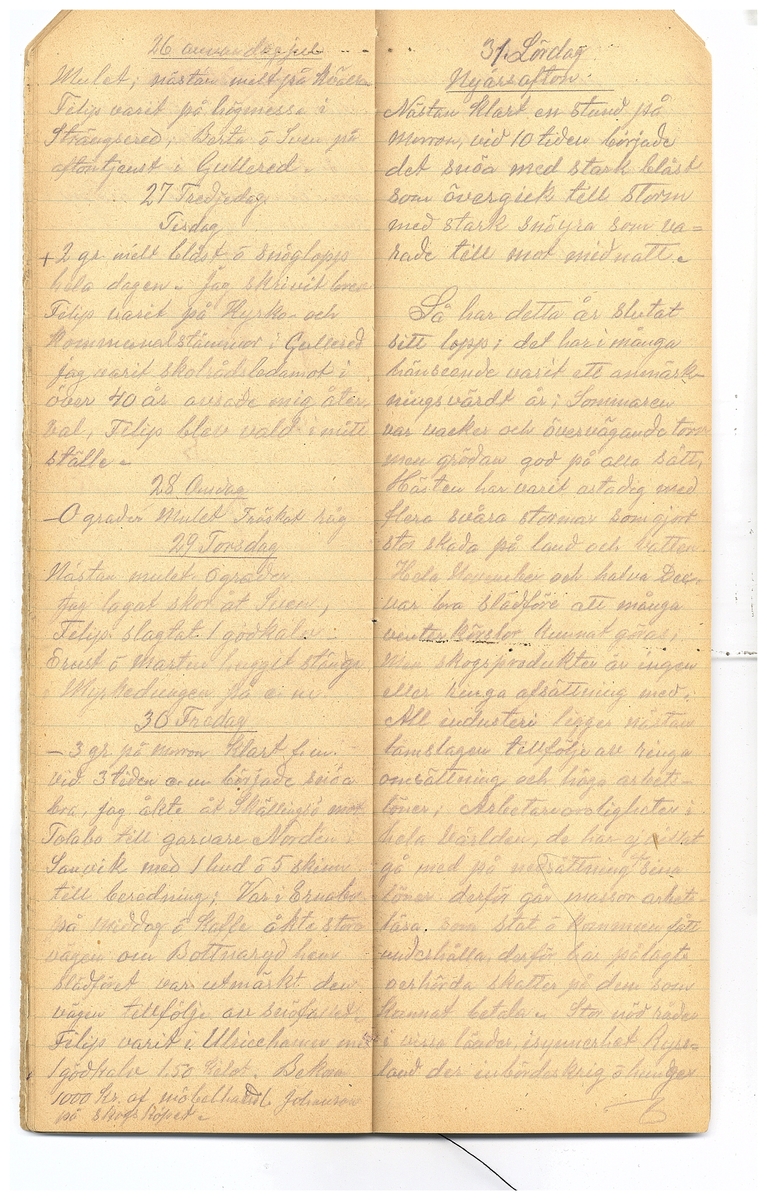 26 annandagjul
Mulet; nästan milt på Kvällen
Filip varit på högmessa i
Strängsered; Berta ö Sven på
aftontjenst i Gullered.
27 Tredjedag
Tisdag
+2 gr. milt blåst ö snöglopp
hela dagen. jag skrivit brev
Filip varit på Kyrko- och
Kommunalstämmor i Gullered
jag varit skolrådsledamot i
över 40 år avsade mig åter-
val, Filip blev vald i mitt
ställe.
28 Onsdag
-0 grader Mulet Tröskat råg
29 Torsdag
Nästan mulet 0 grader
jag lagat skor åt Sven,
Filip slagtat 1 gödkalv.
Ernst ö Martin huggit stänger
i Myrkedungen på e.m.
30 Fredag
-3 gr. på morron Klart fin.
vid 3 tiden e.m. började snöa
bra, jag åkte åt Skällingsö mot
Tolabo till garvare Nordén i
Sanvik med 1 hud ö 5 skinn
till beredning; Var i
på middag ö Kalle åkte stora
vägen om Bottnaryd hem
slädföret var utmärkt den
vägen tillfölje av snöfallet
Filip varit i Ulricehamn med
1 gödkalv 1.50 Kilot. Bekom
1000 Kr. af möbelhandl. Johansson
på skogsköpet.
31 Lördag
Nyårsafton
Nästan Klart en stund på
morron, vid 10 tiden började
det snöa med stark blåst
som övergick till storm
med stark snöyra som va=
rade till mot midnatt.
Så har detta år slutat
sitt lopp; det har i många
hänseende varit ett anmärk-
ningsvärdt år; Sommaren
var vacker och övervägande torr
men grödan god på alla sätt,
Hösten har varit ostadig med
flera svåra stormar som gjort
stor skada på land och vatten.
Hela November och halva Dec.
var bra slädföre att många
venterkörslor Kunnat göras;
Men skogsprodukter är ingen
eller ringa afsättning med;
All industeri ligger nästan
lamslagen tillfölje av ringa
omsättning och höga arbets-
löner; Arbetareoroligheter i
hela Världen, de har ej villat
gå med på nedsättning sina
löner derför går massor arbet-
lösa som stat ö Kommun fått
underhålla, derför har pålagts
oerhörda skatter på dem som
Kunnat betala. Stor nöd råder
i vissa länder, isynnerhet Ryss=
land der inbördeskrig ö hunger